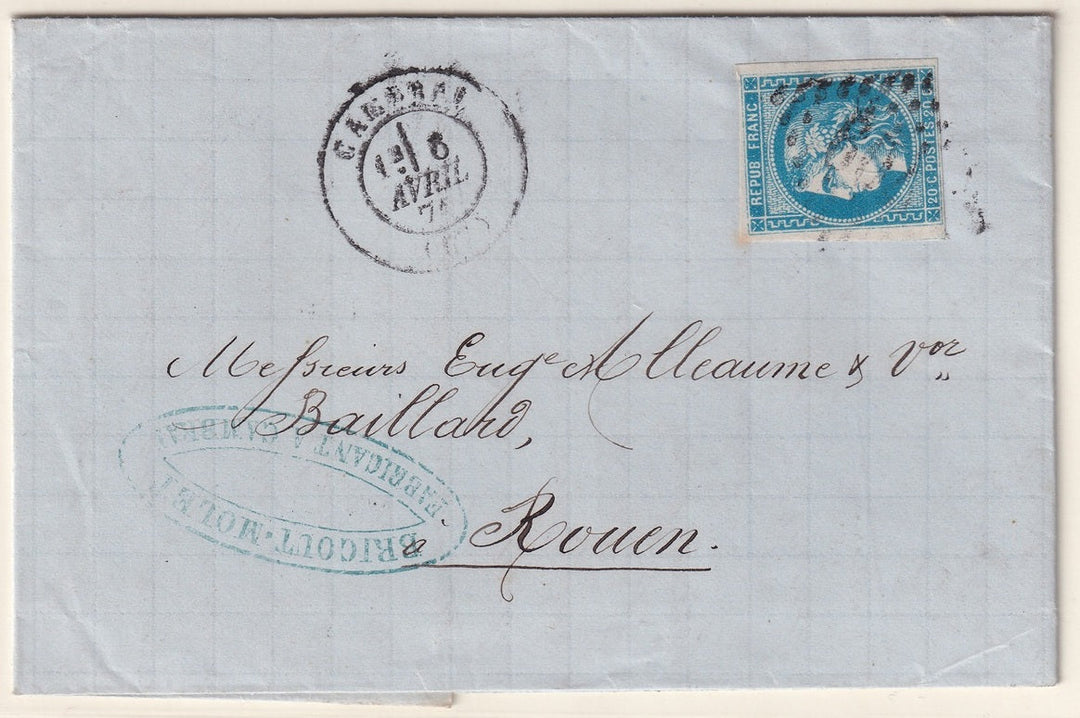 CAMBRAI
6
AVRIL
71
REPUB. FRANC.
20 C. POSTES. 20 C.
Messieurs Eug.e Alleaume & Vor
Baillard,
à Rouen.
BRICOUT-MOLET
FABRICANT A CAMBRAI